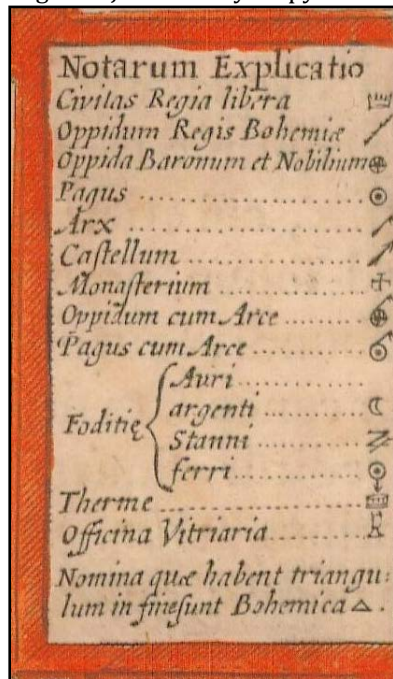 Notarum Explicatio
Civitas Regia libera
Oppidum Regis Bohemiæ
Oppida Baronum et Nobilium
Pagus ..................
Arx ..................
Caſtellum ..............
Monaſterium ..............
Oppidum cum Arce ........
Pagus cum Arce ...........
Foditię
Auri ............
argenti ...........
Stanni ...........
ferri ............
Therme ..................
Officina Vitriaria .........
Nomina quæ habent triangu:
lum in fine ſunt Bohemica △.